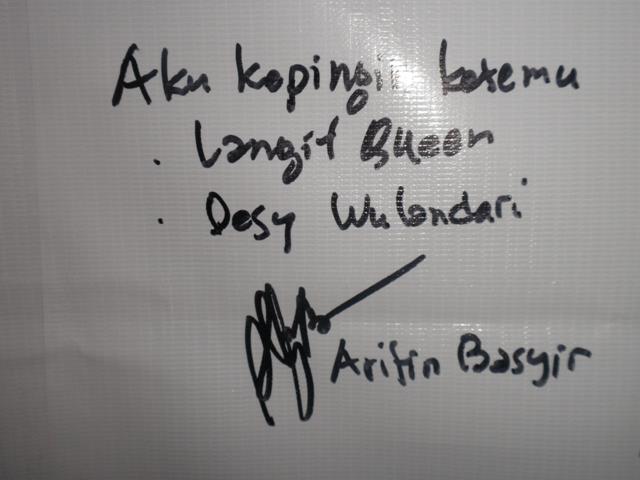 Aku kepingin ketemu
. Langit Queen
. Desy Wulandari
Arifin Basyir